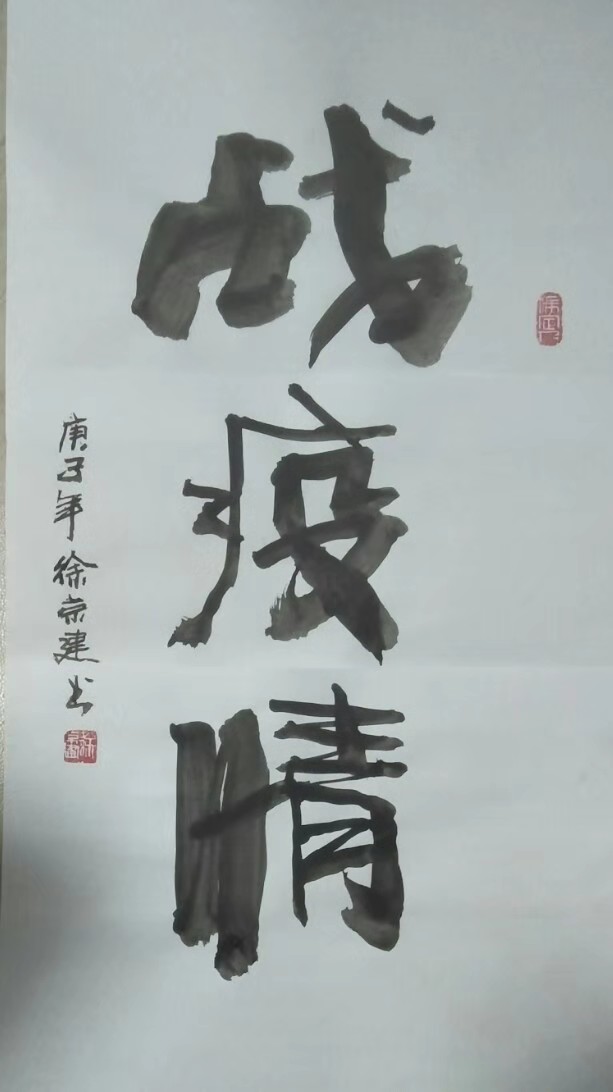 战疫情
庚子年徐宗建书